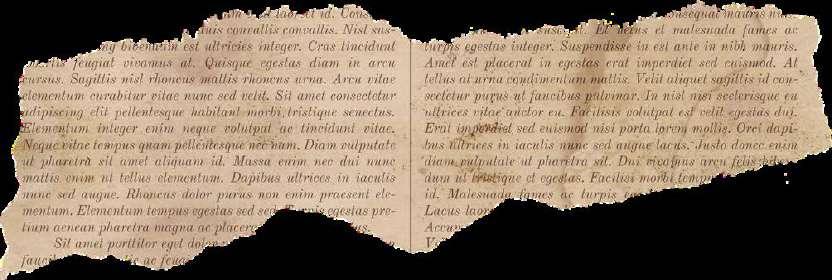 duis convallis convallis. Nisl sus-
bibendum est ultricies integer. Cras tincidunt
feugiat vivamus at. Quisque egestas diam in arcu
cursus. Sagittis nisl rhoncus mattis rhoncus urna. Arcu vitae
elementum curabitur vitae nunc sed velit. Sit amet consectetur
adipiscing elit pellentesque habitant morbi tristique senectus.
Elementum integer enim neque volutpat ac tincidunt vitae.
Neque vitae tempus quam pellentesque nec nam. Diam vulputate
ut pharetra sit amet aliquam id. Massa enim nec dui nunc
mattis enim ut tellus elementum. Dapibus ultrices in iaculis
nunc sed augue. Rhoncus dolor purus non enim praesent ele-
mentum. Elementum tempus egestas sed sed. Turpis egestas pre-
tium aenean pharetra magna ac placerat
Sit amet porttitor eget dolor
ac feug
consequat mauris nu
suscipit. Et netus et malesuada fames ac
turpis egestas integer. Suspendisse in est ante in nibh mauris.
Amet est placerat in egestas erat imperdiet sed euismod. At
tellus at urna condimentum mattis. Velit aliquet sagittis id con-
sectetur purus ut faucibus pulvinar. In nisl nisi scelerisque eu
ultrices vitae auctor eu. Facilisis volutpat est velit egestas dui.
Erat imperdiet sed euismod nisi porta lorem mollis. Orci dapi-
bus ultrices in iaculis nunc sed augue lacus. Justo donec enim
diam vulputate ut pharetra sit. Dui vivamus arcu felis biben-
dum ut tristique et egestas. Facilisi morbi temp
id. Malesuada fames ac turpis eg
Lacus laor
Accum